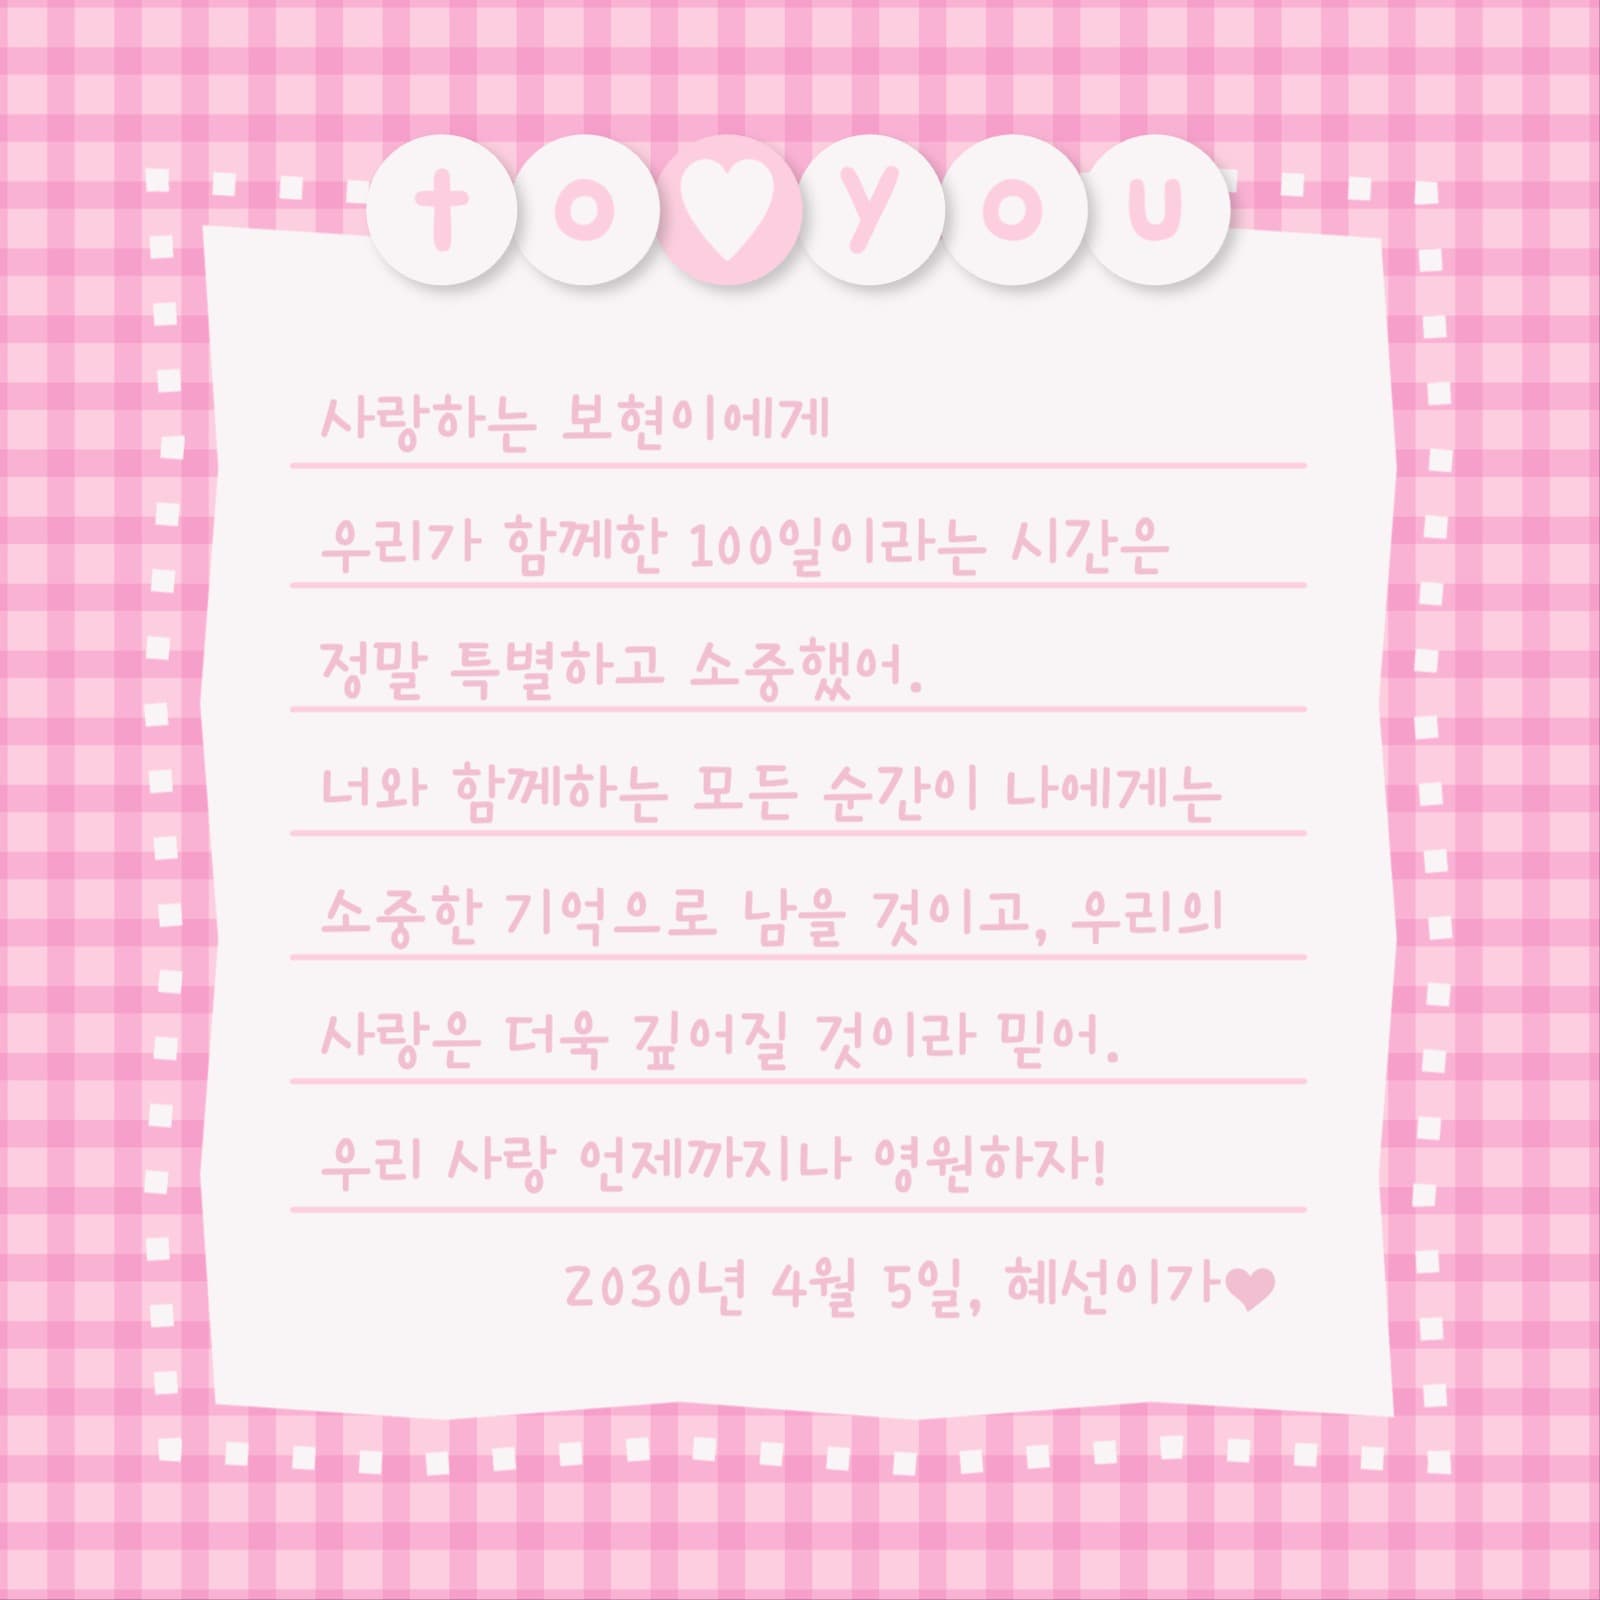 to♥you
사랑하는 보현이에게
우리가 함께한 100일이라는 시간은
정말 특별하고 소중했어.
너와 함께하는 모든 순간이 나에게는
소중한 기억으로 남을 것이고, 우리의
사랑은 더욱 깊어질 것이라 믿어.
우리 사랑 언제까지나 영원하자!
2030년 4월 5일, 혜선이가♥